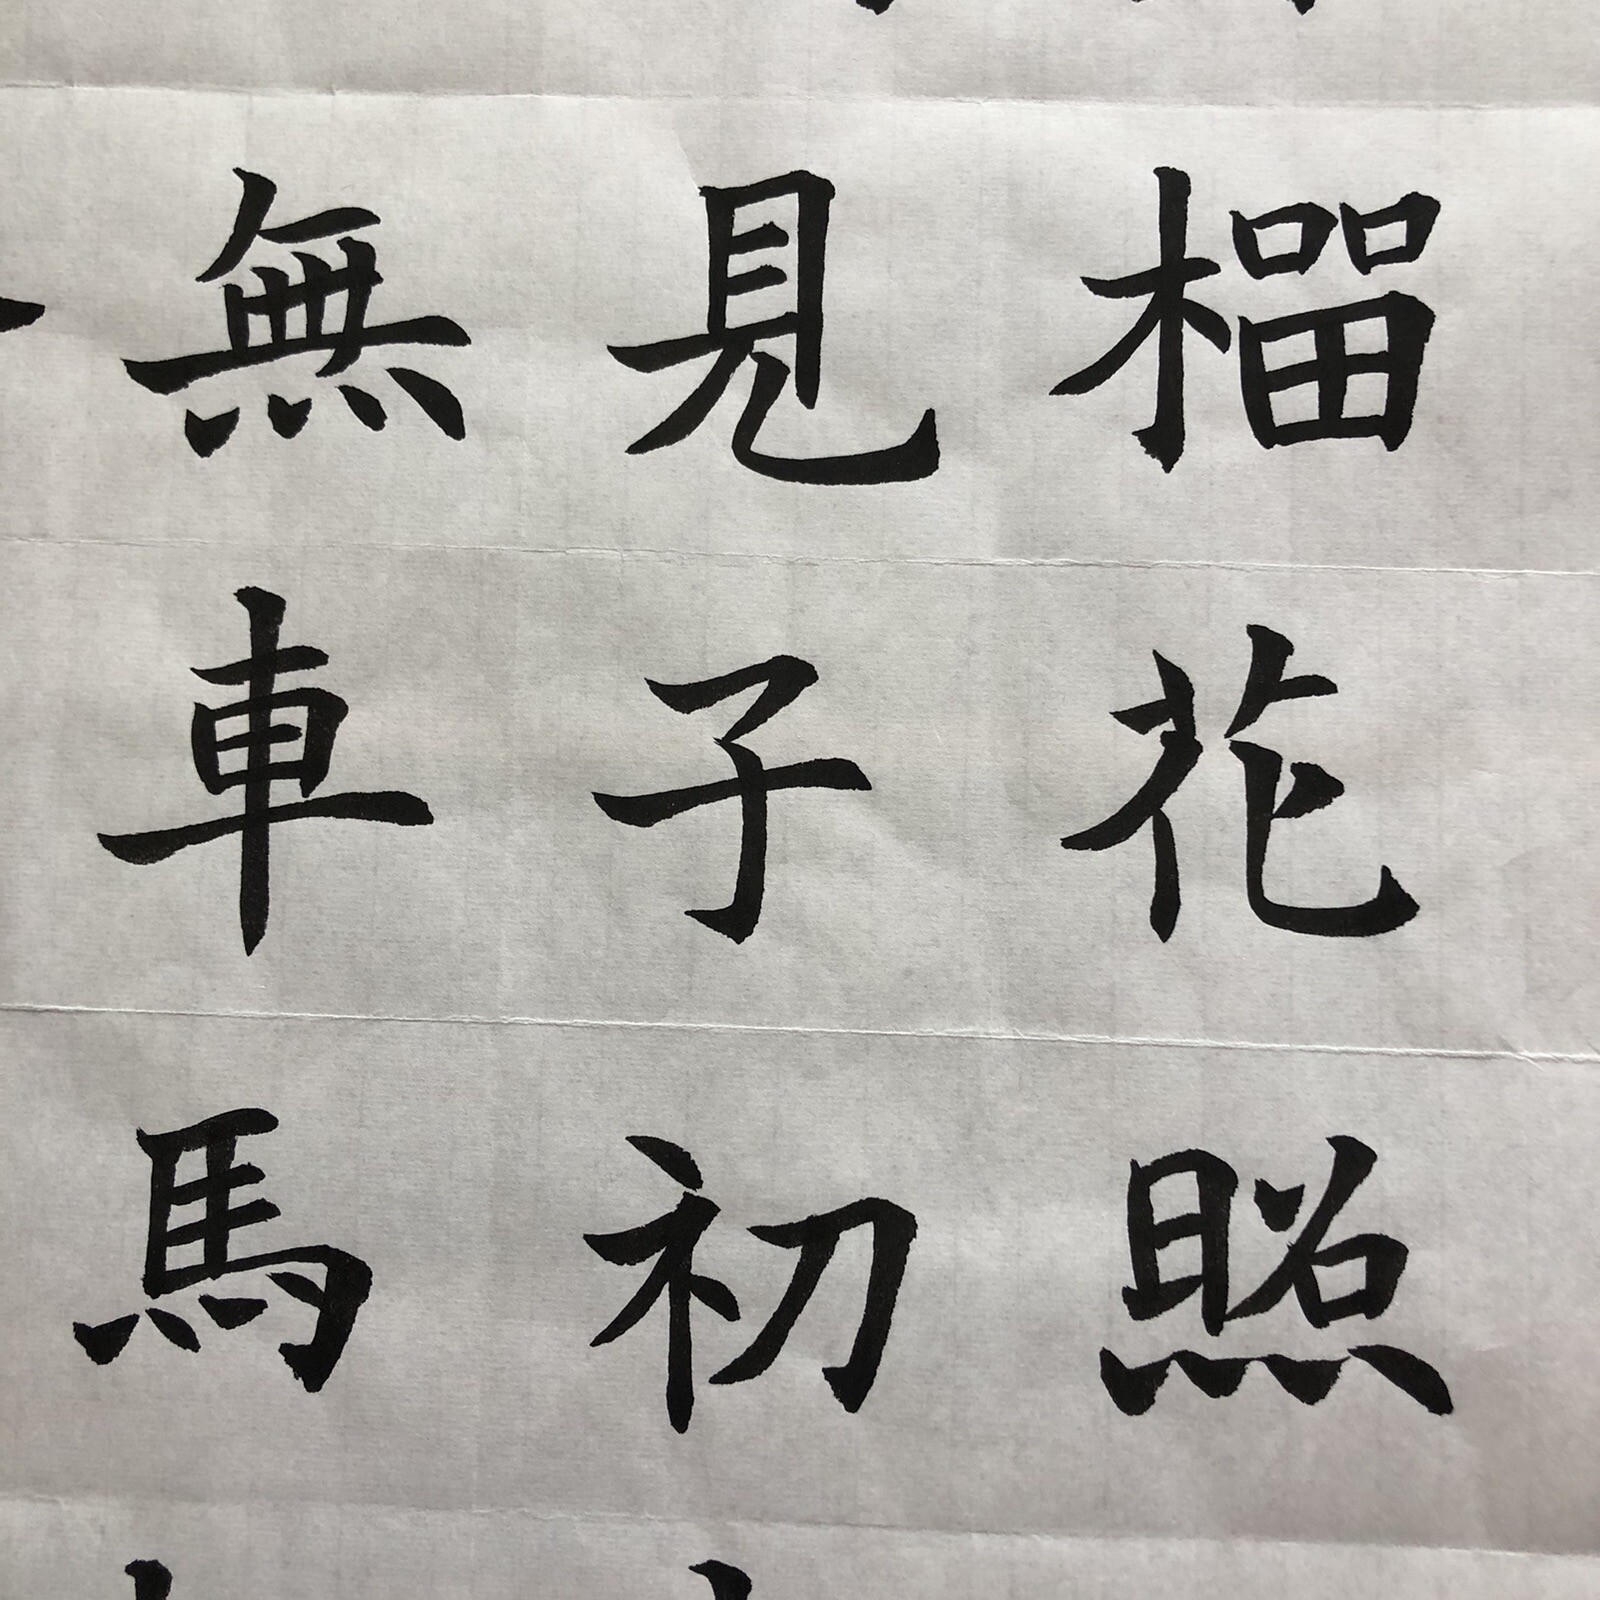 榴花照
見子初
無車馬